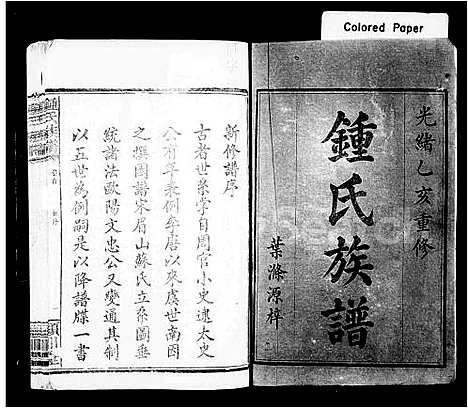 Colored Paper
光緒乙亥重修
鍾氏族譜
葉滌源梓
新修譜序
古者世系學自周官小史逮太史
公有年表例年唐以來虞世南因
之撰圖譜宋眉山蘇氏立系圖垂
統諸法歐陽文忠公又變通其制
以五世為例嗣是以降譜牒一書